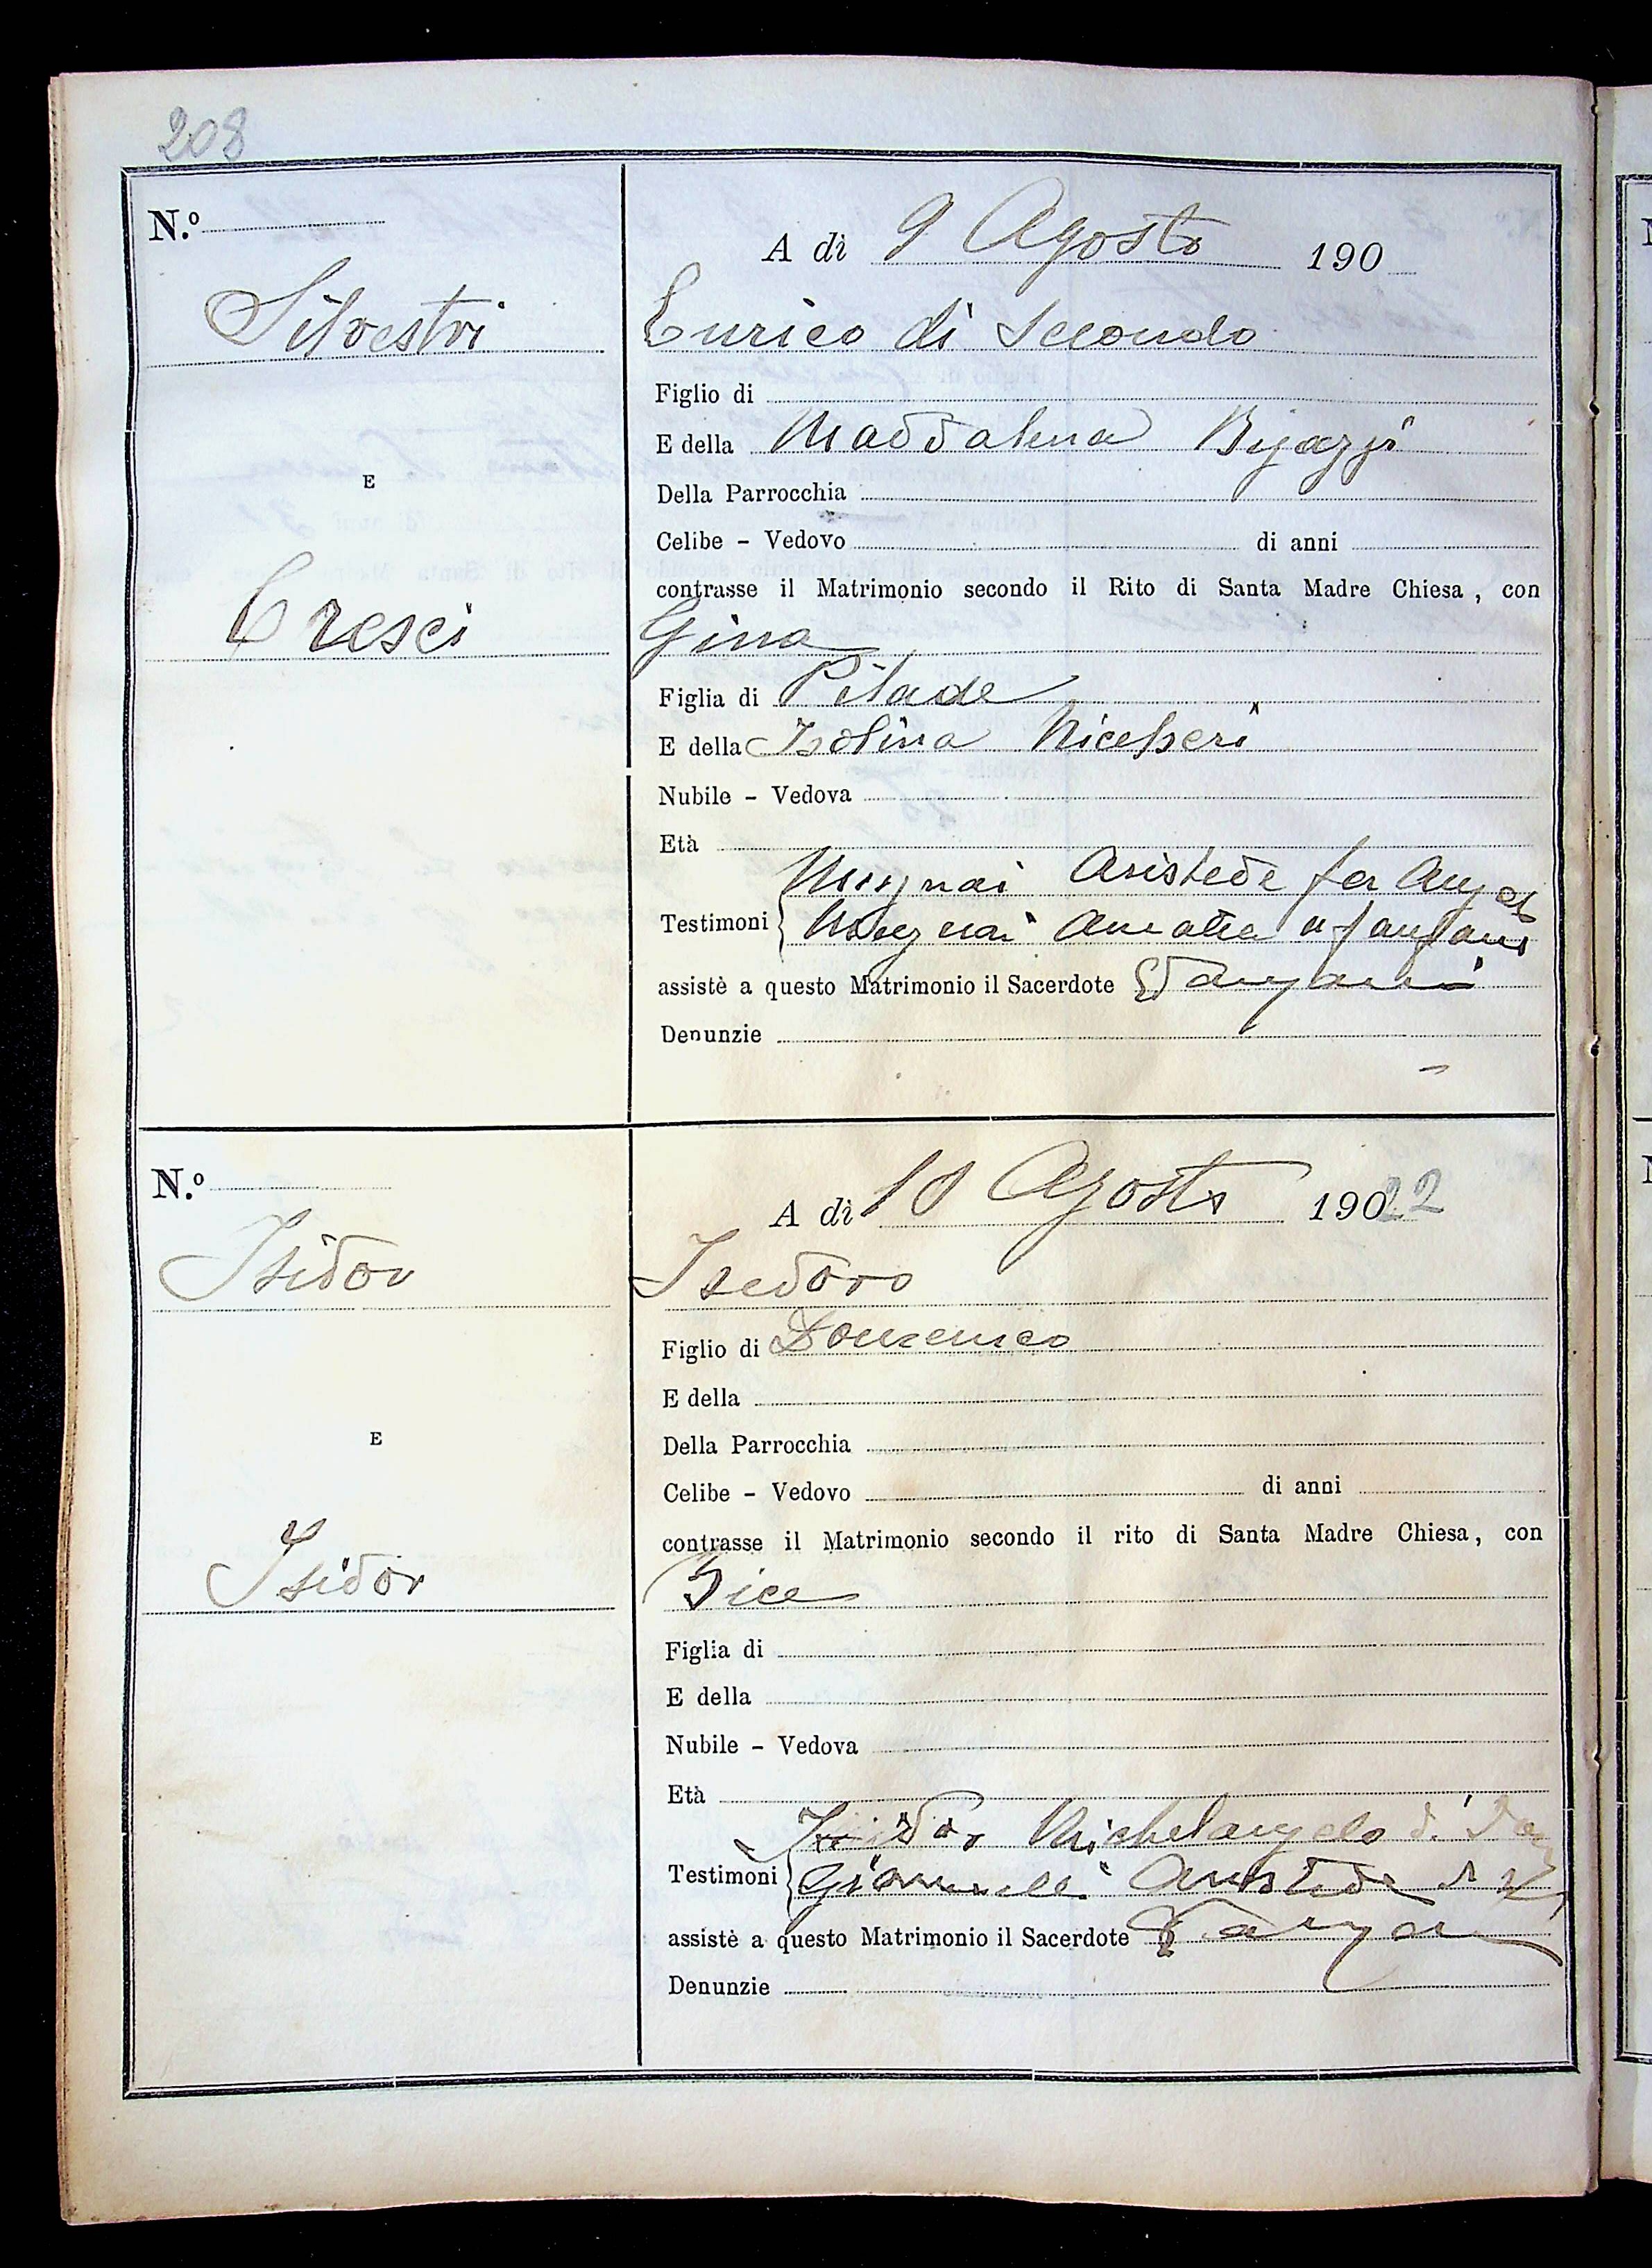 208
N.º
Silvestri
E
Cresci
A dì 9 Agosto 190
Enrico di Secondo
Figlio di
E della Maddalena Bigazzi
Della Parrocchia
Celibe - Vedovo di anni
contrasse il Matrimonio secondo il Rito di Santa Madre Chiesa, con
Gina
Figlia di Pilade
E della Isolina Niccheri
Nubile - Vedova
Età
Mugnai Aristede
Testimoni Mugnai
assistè a questo Matrimonio il Sacerdote
Denunzie
N.º
Isidor
E
Isidor
A dì 10 Agosto 19022
Isidoro
Figlio di Domenico
E della
Della Parrocchia
Celibe - Vedovo di anni
contrasse il Matrimonio secondo il rito di Santa Madre Chiesa, con
Bice
Figlia di
E della
Nubile - Vedova
Età
Isidor Michelangelo di
Testimoni Giannelli Aristide di
assistè a questo Matrimonio il Sacerdote
Denunzie